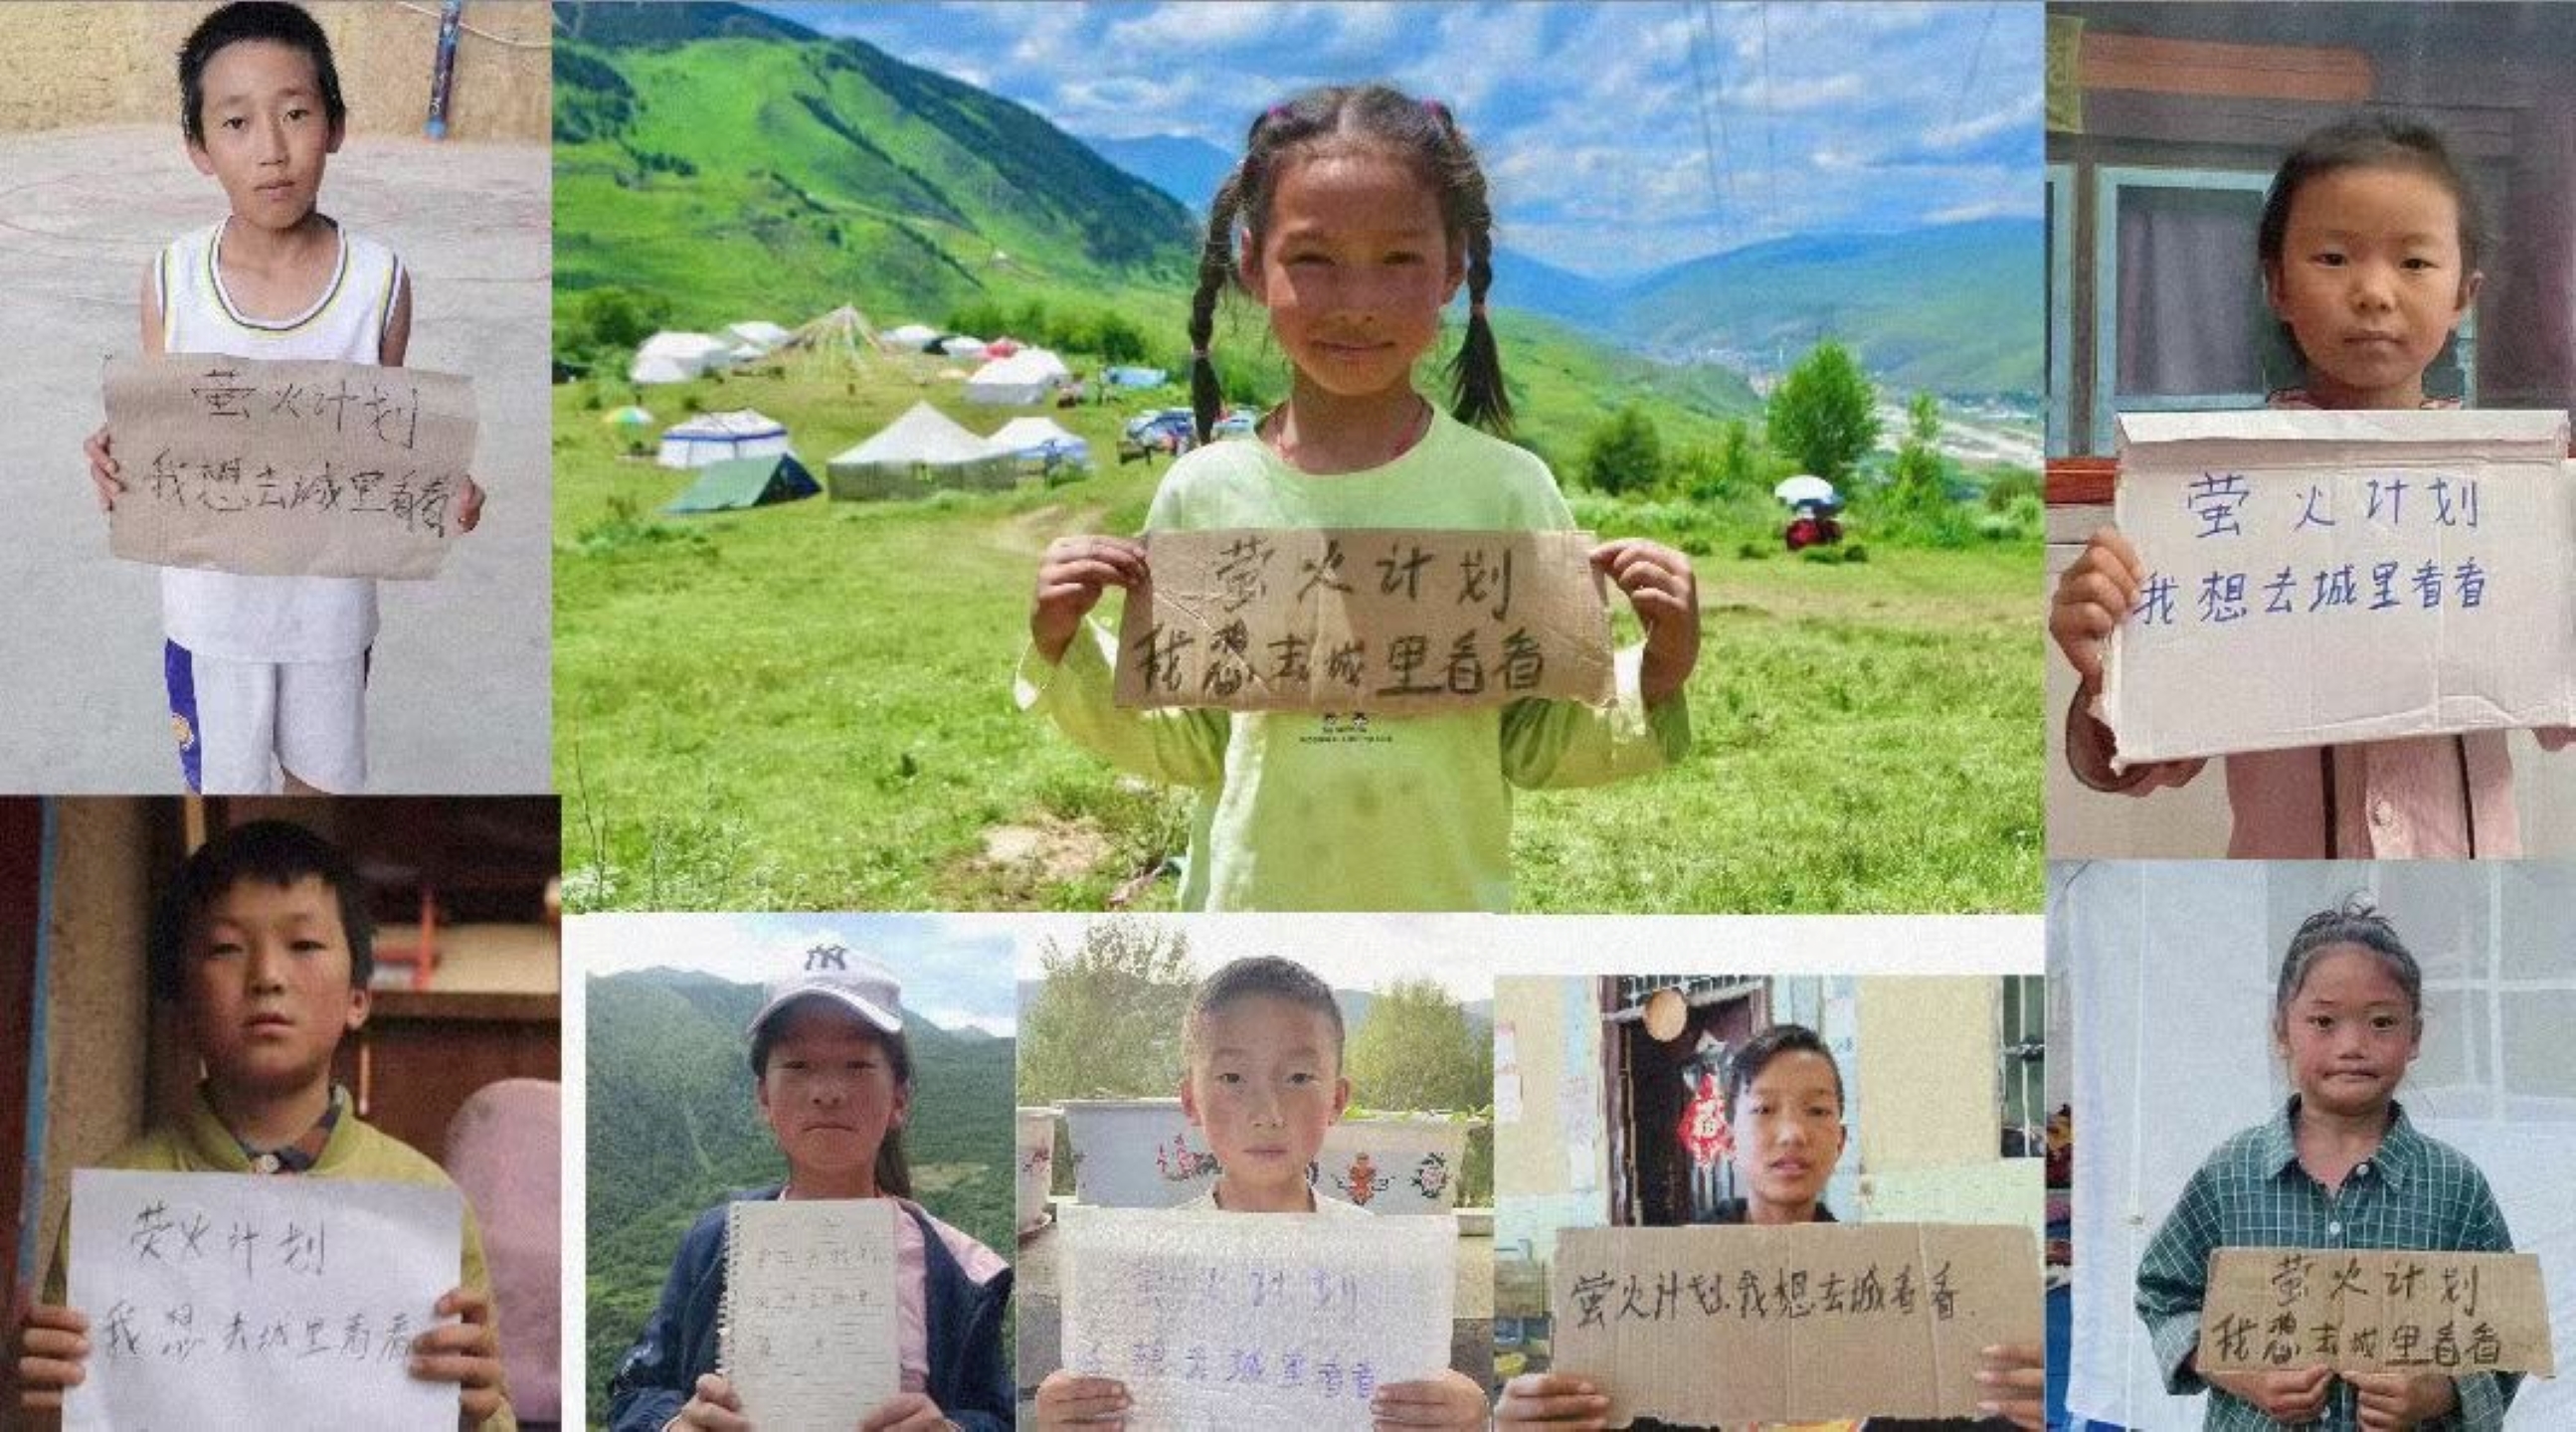 萤火计划
我想去城里看看
萤火计划
我想去城里看看
萤火计划
我想去城里看看
荧火计划
我想去城里看看
NY
火计划
想去城里看看
萤火计划.我想去城看看.
萤火计划
我想去城里看看